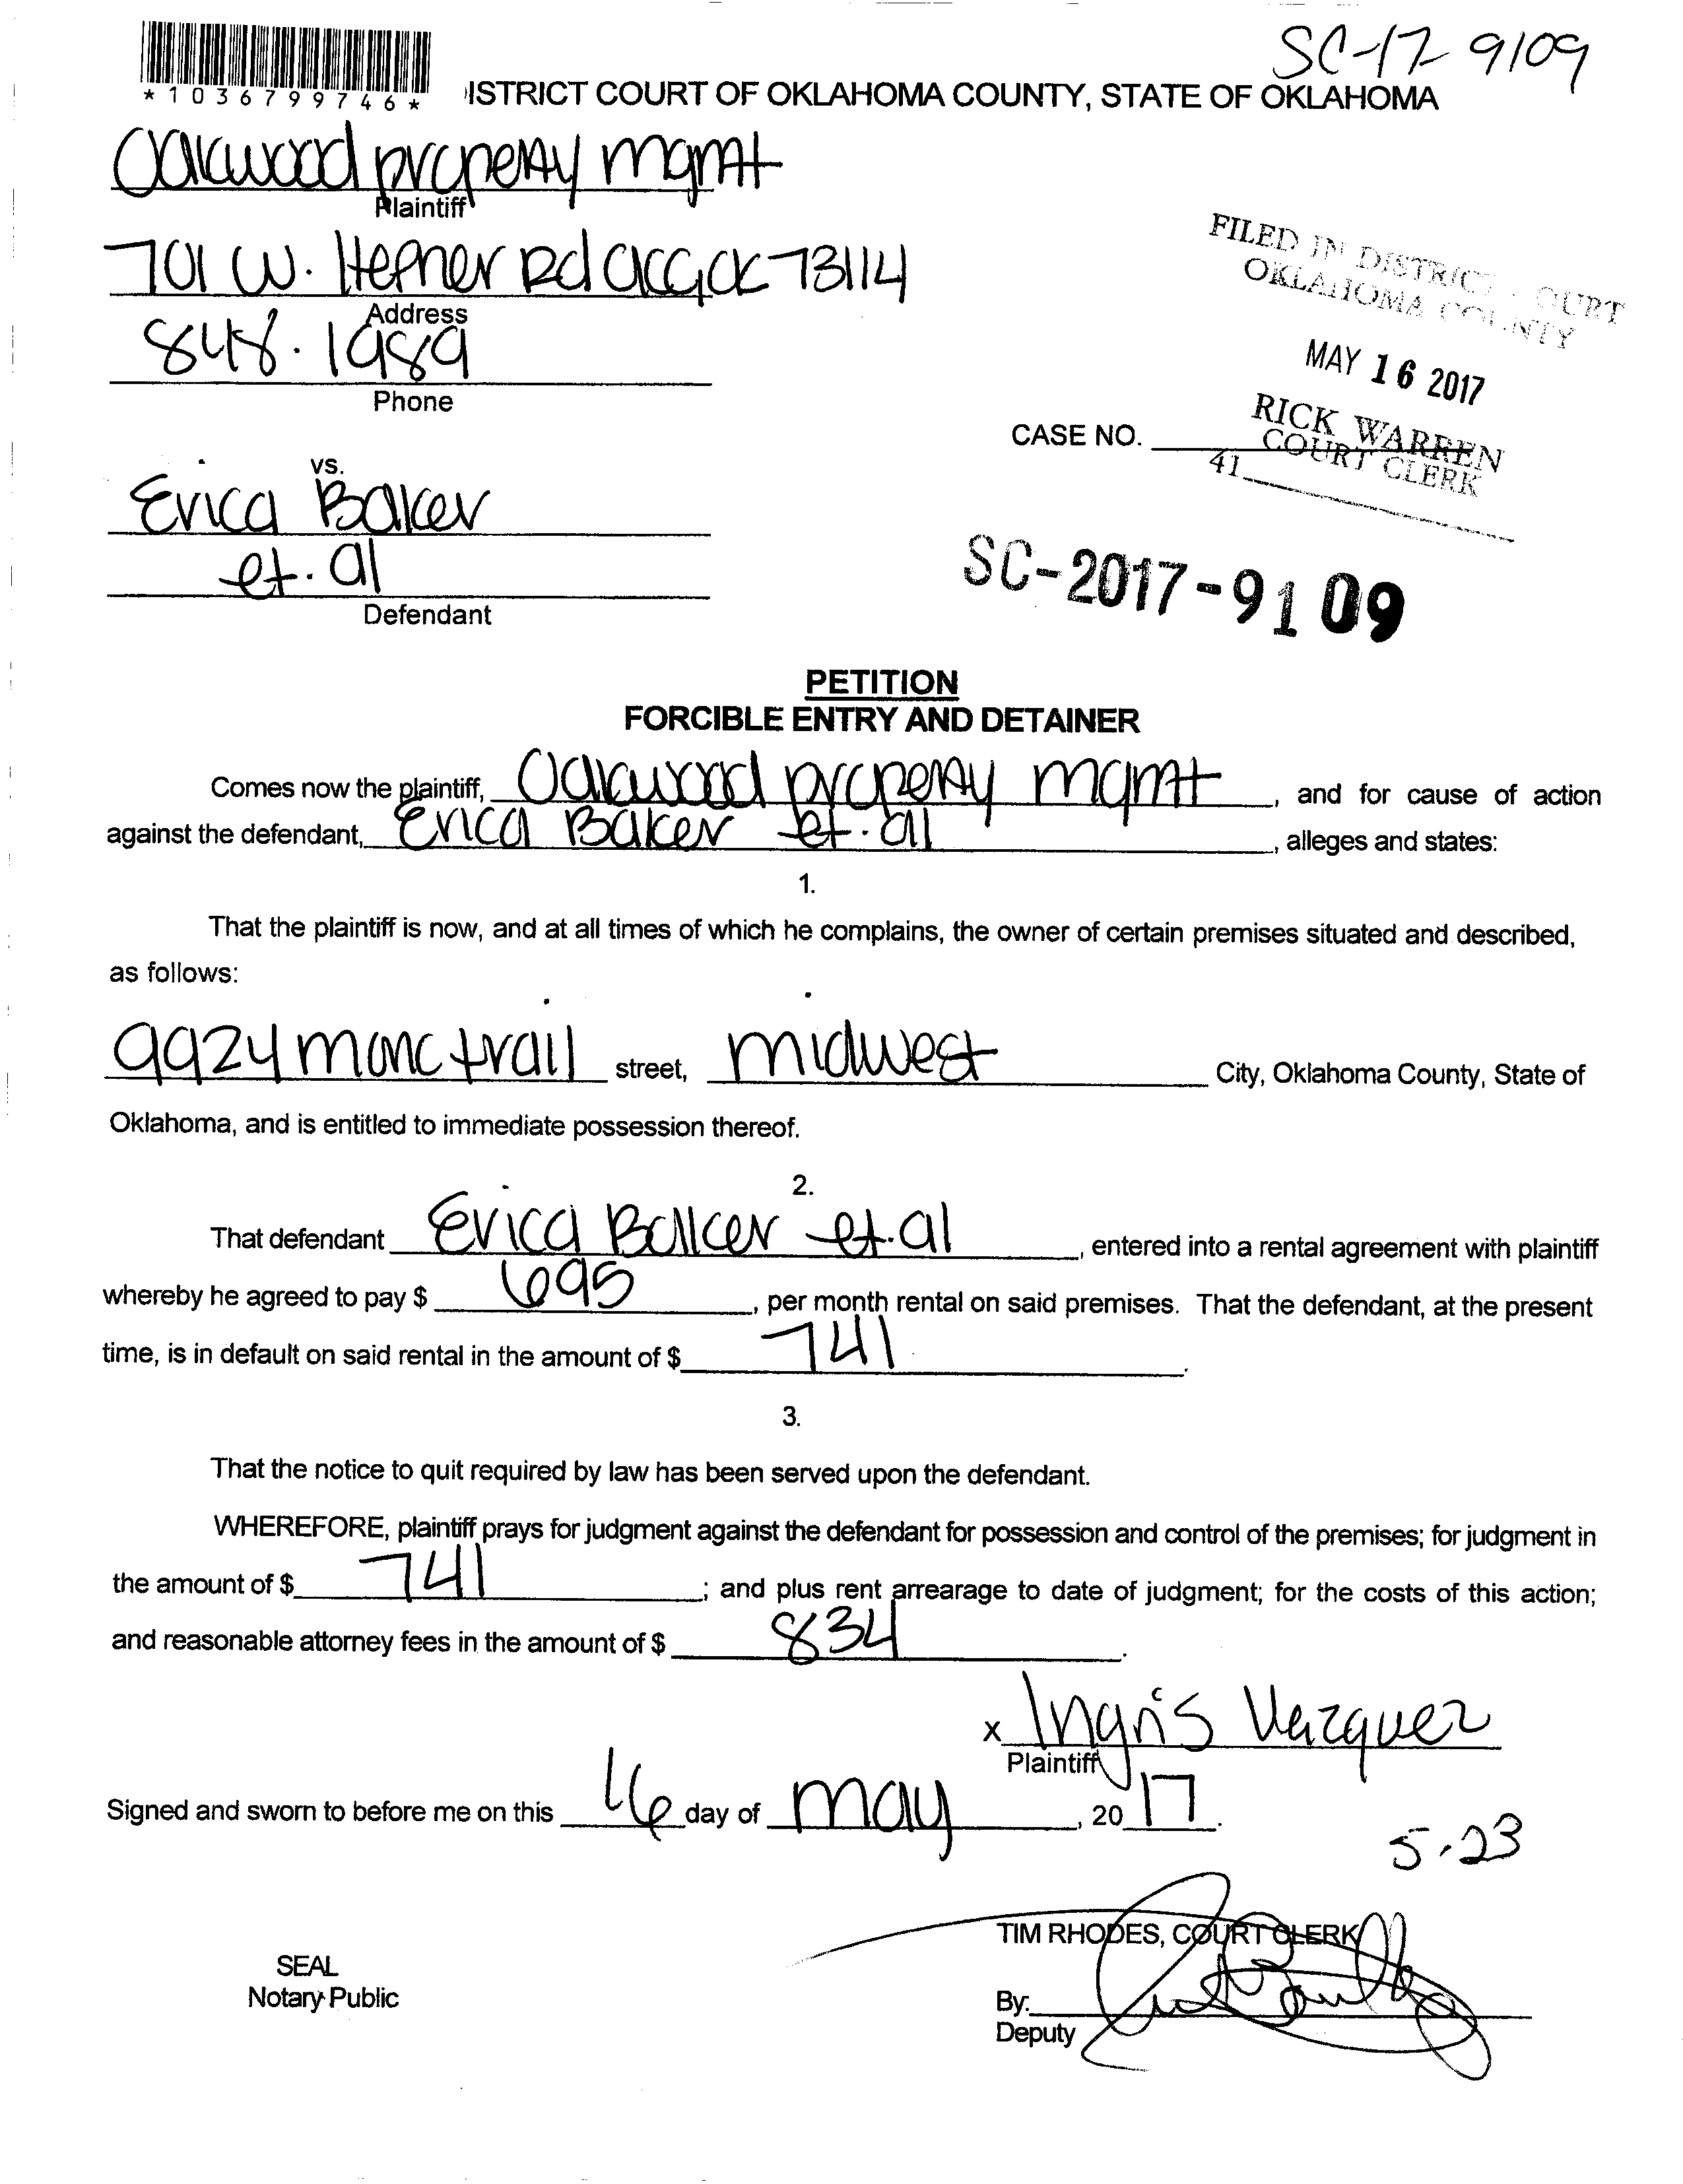 SC-17-9109
*1036799746*
ISTRICT COURT OF OKLAHOMA COUNTY, STATE OF OKLAHOMA
Oakwood property mgmt
Plaintiff
701 W. Hefner Rd OKC, OK 73114
Address
848.1989
Phone
FILED IN DISTRICT COURT
OKLAHOMA COUNTY
MAY 16 2017
RICK WARREN
COURT CLERK
41
CASE NO.
vs.
Erica Baker
et. al
Defendant
SC-2017-9109
PETITION
FORCIBLE ENTRY AND DETAINER
Comes now the plaintiff, Oakwood property mgmt, and for cause of action
against the defendant, Erica Baker et. al, alleges and states:
1.
That the plaintiff is now, and at all times of which he complains, the owner of certain premises situated and described,
as follows:
9924 monc trail street, midwest City, Oklahoma County, State of
Oklahoma, and is entitled to immediate possession thereof.
2.
That defendant Erica Baker et. al, entered into a rental agreement with plaintiff
whereby he agreed to pay $ 695, per month rental on said premises. That the defendant, at the present
time, is in default on said rental in the amount of $ 741.
3.
That the notice to quit required by law has been served upon the defendant.
WHEREFORE, plaintiff prays for judgment against the defendant for possession and control of the premises; for judgment in
the amount of $ 741; and plus rent arrearage to date of judgment; for the costs of this action;
and reasonable attorney fees in the amount of $ 834.
x Ingris Vazquez
Plaintiff
Signed and sworn to before me on this 16 day of may, 2017.
5.23
TIM RHODES, COURT CLERK
SEAL
Notary Public
By:
Deputy